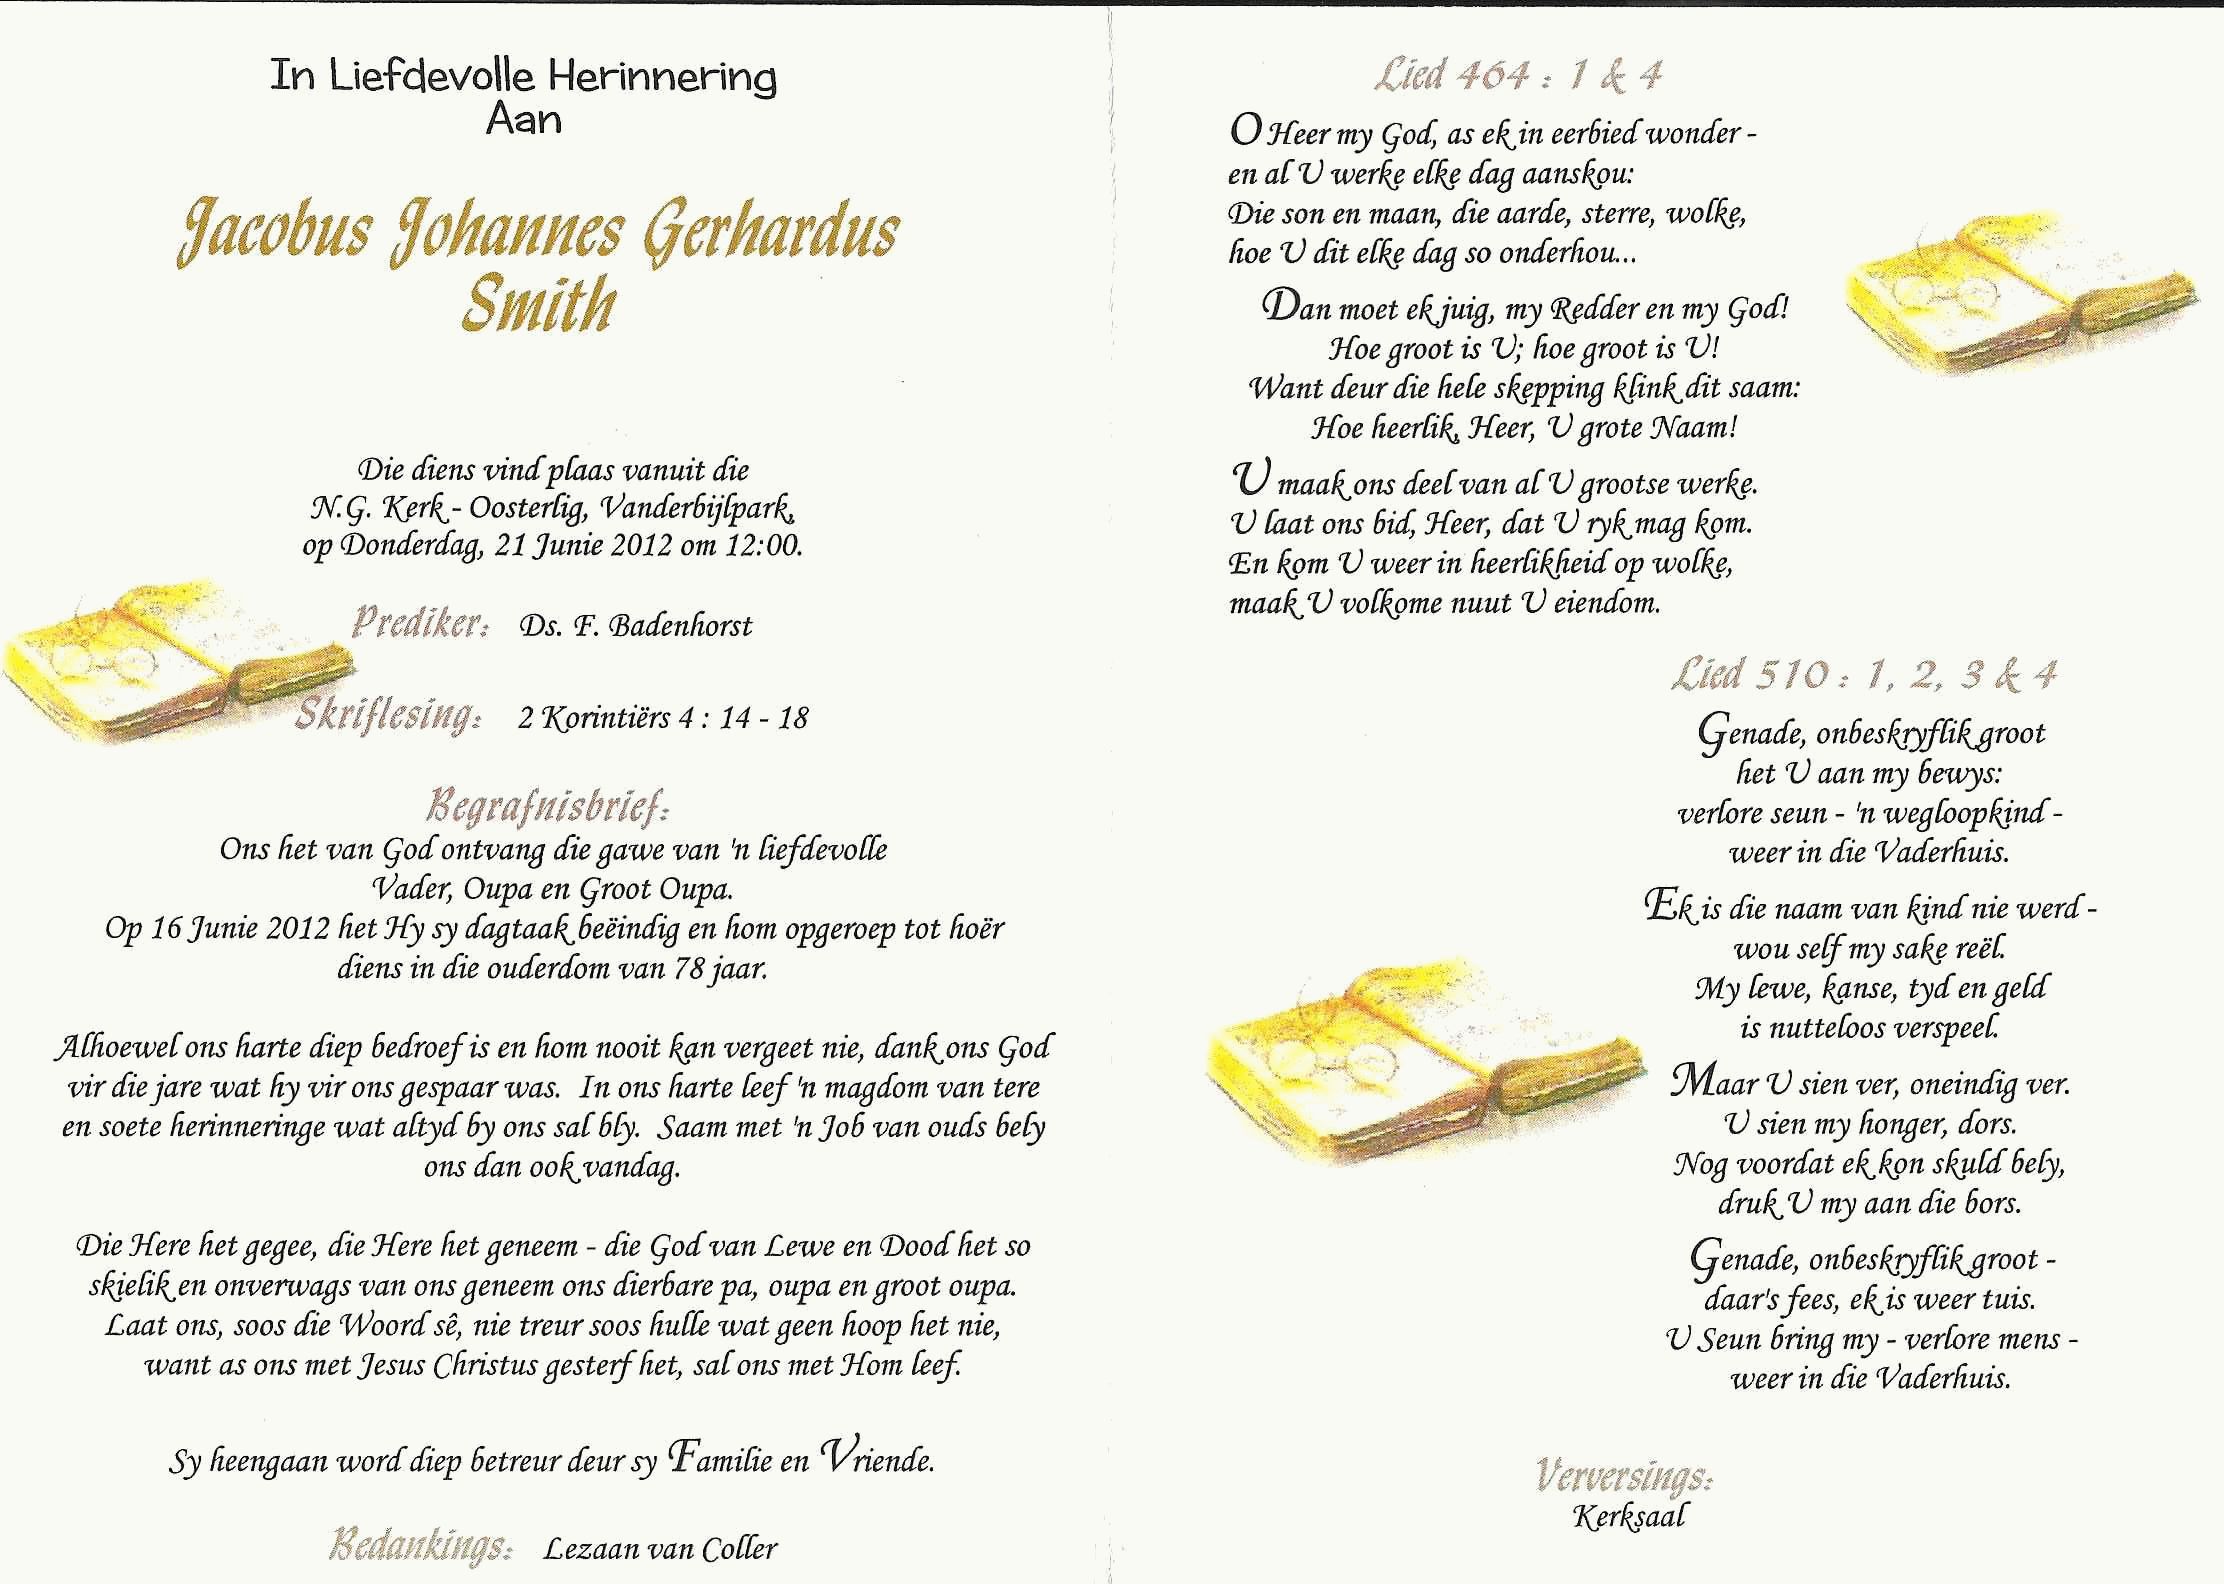 In Liefdevolle Herinnering
Aan
Jacobus Johannes Gerhardus
Smith
Die diens vind plaas vanuit die
N.G. Kerk - Oosterlig, Vanderbijlpark,
op Donderdag, 21 Junie 2012 om 12:00.
Prediker: Ds. F. Badenhorst
Skriflesing: 2 Korintiërs 4 : 14 - 18
Begrafnisbrief:
Ons het van God ontvang die gawe van 'n liefdevolle
Vader, Oupa en Groot Oupa.
Op 16 Junie 2012 het Hy sy dagtaak beëindig en hom opgeroep tot hoër
diens in die ouderdom van 78 jaar.
Alhoewel ons harte diep bedroef is en hom nooit kan vergeet nie, dank ons God
vir die jare wat hy vir ons gespaar was. In ons harte leef 'n magdom van tere
en soete herinneringe wat altyd by ons sal bly. Saam met 'n Job van ouds bely
ons dan ook vandag.
Die Here het gegee, die Here het geneem - die God van Lewe en Dood het so
skielik en onverwags van ons geneem ons dierbare pa, oupa en groot oupa.
Laat ons, soos die Woord sê, nie treur soos hulle wat geen hoop het nie,
want as ons met Jesus Christus gesterf het, sal ons met Hom leef.
Sy heengaan word diep betreur deur sy Familie en Vriende.
Bedankings: Lezaan van Coller
Lied 464 : 1 & 4
O Heer my God, as ek in eerbied wonder -
en al U werke elke dag aanskou:
Die son en maan, die aarde, sterre, wolke,
hoe U dit elke dag so onderhou...
Dan moet ek juig, my Redder en my God!
Hoe groot is U; hoe groot is U!
Want deur die hele skepping klink dit saam:
Hoe heerlik, Heer, U grote Naam!
U maak ons deel van al U grootse werke.
U laat ons bid, Heer, dat U ryk mag kom.
En kom U weer in heerlikheid op wolke,
maak U volkome nuut U eiendom.
Lied 510 : 1, 2, 3 & 4
Genade, onbeskryflik groot
het U aan my bewys:
verlore seun - 'n wegloopkind -
weer in die Vaderhuis.
Ek is die naam van kind nie werd -
wou self my sake reël.
My lewe, kanse, tyd en geld
is nutteloos verspeel.
Maar U sien ver, oneindig ver.
U sien my honger, dors.
Nog voordat ek kon skuld bely,
druk U my aan die bors.
Genade, onbeskryflik groot -
daar's fees, ek is weer tuis.
U Seun bring my - verlore mens -
weer in die Vaderhuis.
Verversings:
Kerksaal